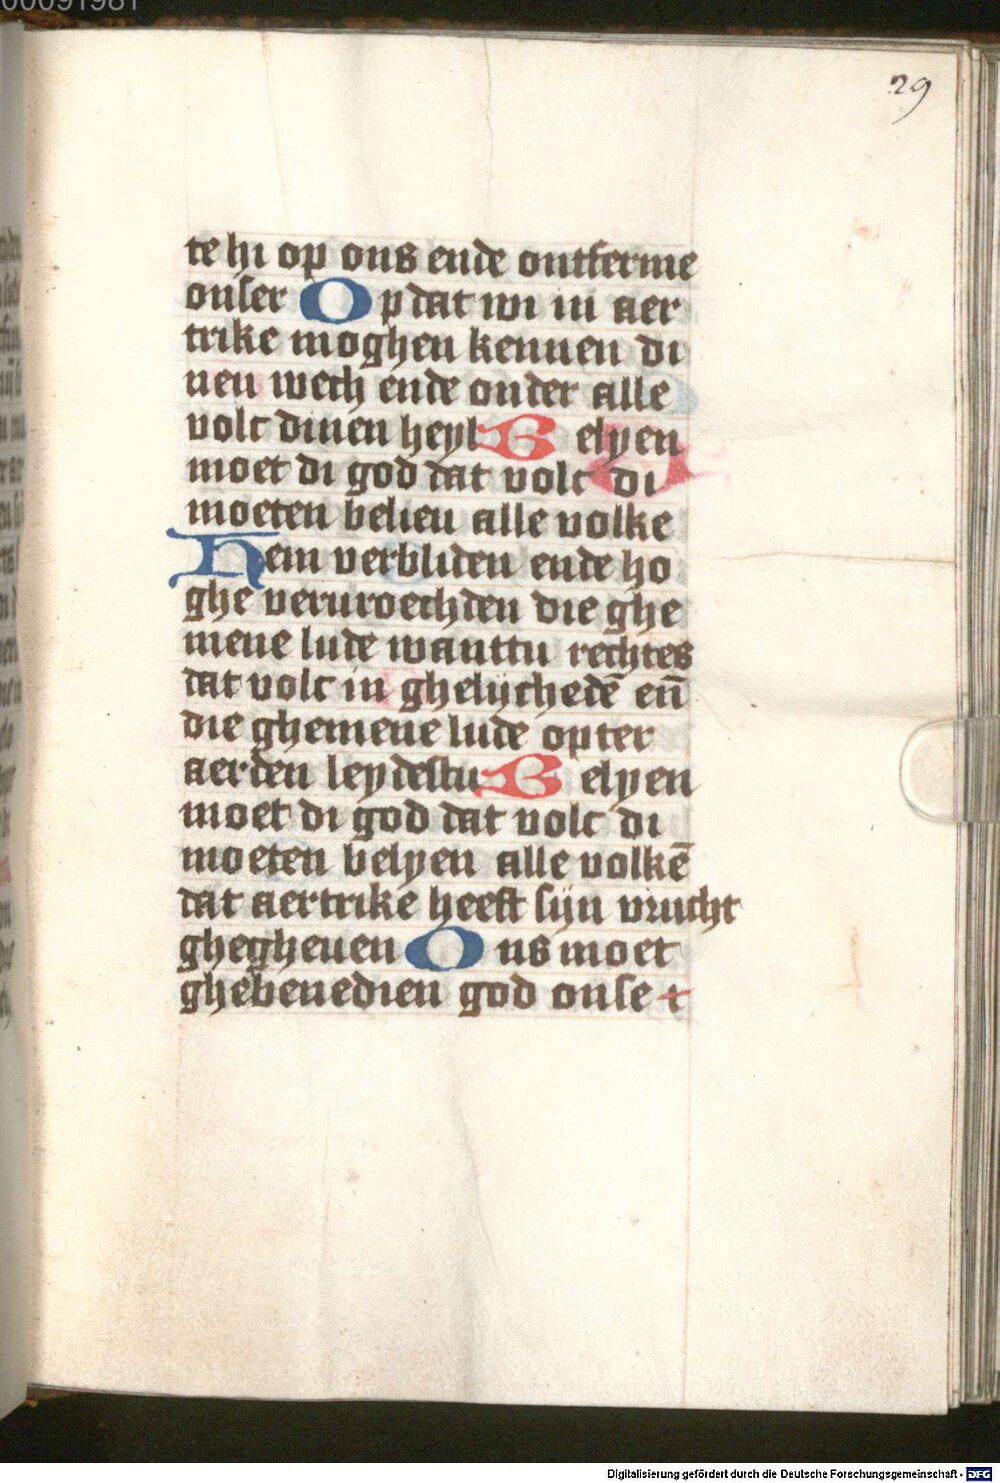 00091981
29
te hi op ons ende ontferme
onser Op dat wi in aer
trike moghen kennen di
nen wech ende onder alle
volc dinen heyl Belyen
moet di god dat volc di
moeten belien alle volke
Hem verbliden ende ho
ghe veruroechden die ghe
mene lude wanttu rechtes
dat volc in ghelijchedē eñ
die ghemene lude op ter
aerden leydestu Belyen
moet di god dat volc di
moeten belyen alle volkē
dat aertrike heeft sijn vrucht
ghegheuen Ons moet
ghebenedien god onse
Digitalisierung gefördert durch die Deutsche Forschungsgemeinschaft - DFG